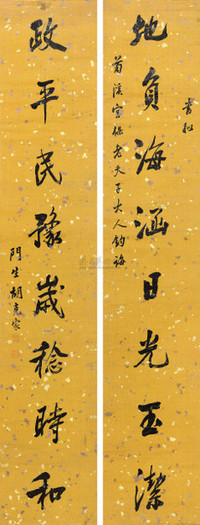 書似
菊溪宮保老夫子大人鈞誨
地負海涵日光玉潔
政平民豫歲稔時和
門生胡克家